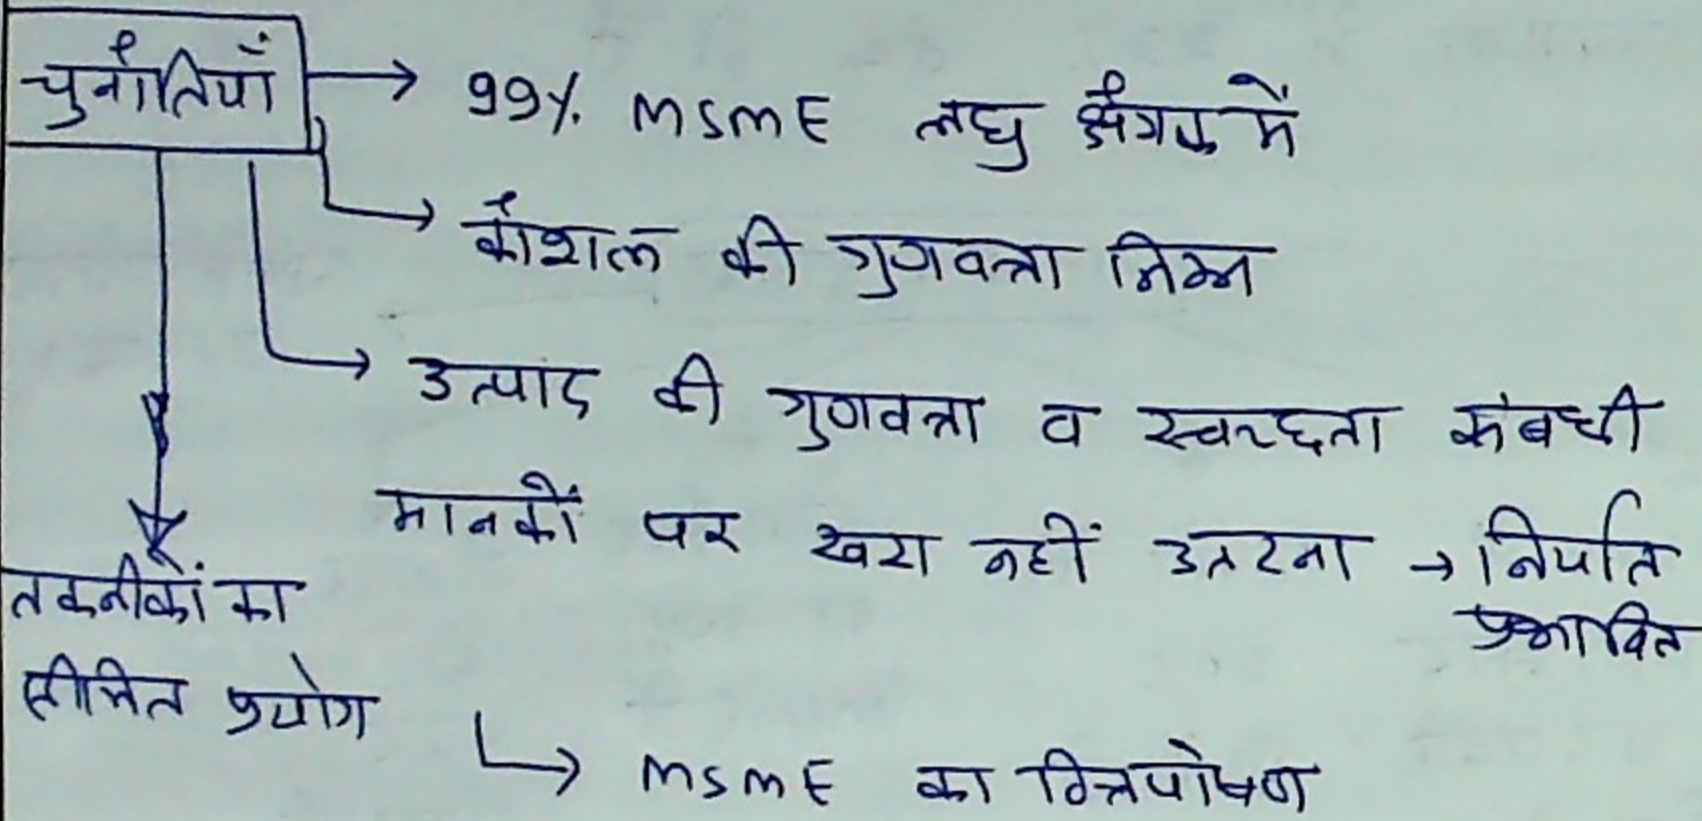 चुनौतियाँ → 99% MSME लघु क्षेत्रक में
→ कौशल की गुणवत्ता निम्न
→ उत्पाद की गुणवत्ता व स्वच्छता संबंधी
मानकों पर खरा नहीं उतरना → निर्यात
प्रभावित
तकनीकों का
सीमित प्रयोग
→ MSME का वित्तपोषण